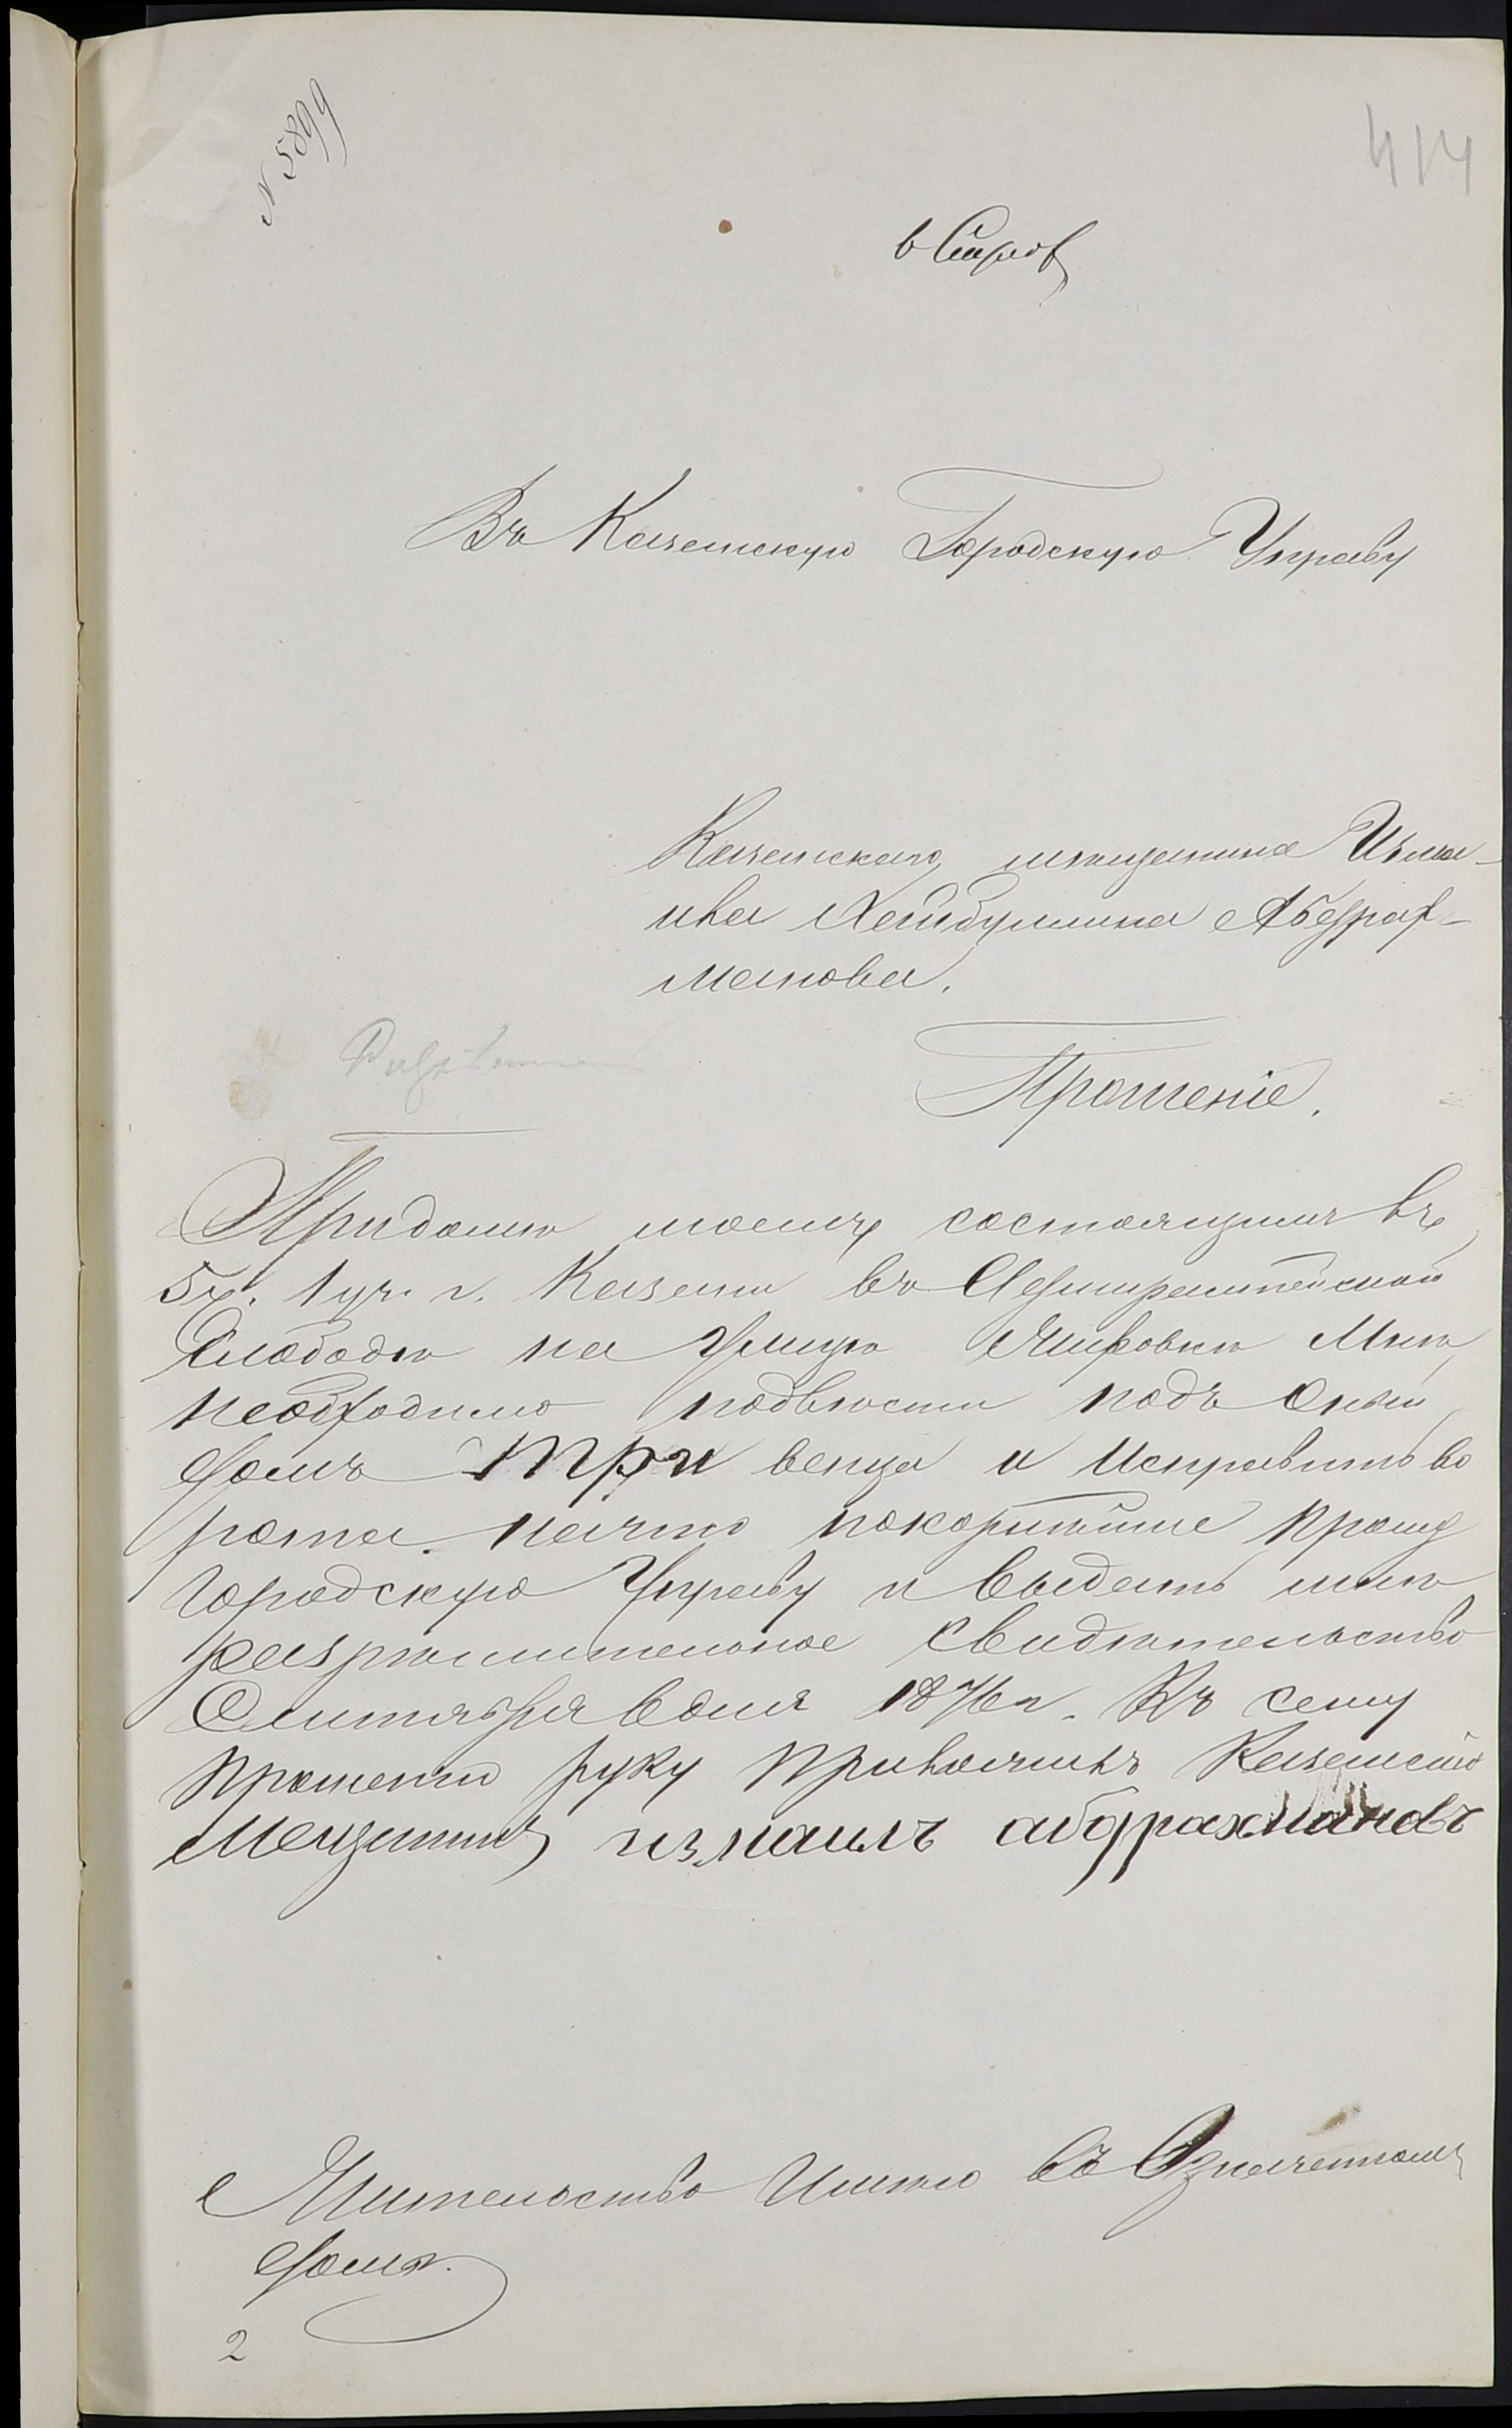 N 5899
414
Въ Казанскую Городскую Управу
Казанскаго мещанина Изма-
ила Хейбуллина Абдрах-
манова.
Прошеніе.
При доме моемъ состоящимъ въ
5 ч. 1 уч. г. Казани въ Адмиралтейской
Слободе на Улице Мне
необходимо подвести подъ оный
домъ три венца и исправить во
рота. начто покорнейше прошу
Городскую Управу и выдать мне
разрешительное свидетельство
Сентября дня 1876 г. Къ сему
прошенію руку приложилъ Казанской
Мещанинъ измаилъ абдрахмановъ
Жительство Имею въ Означенномъ
доме.
2